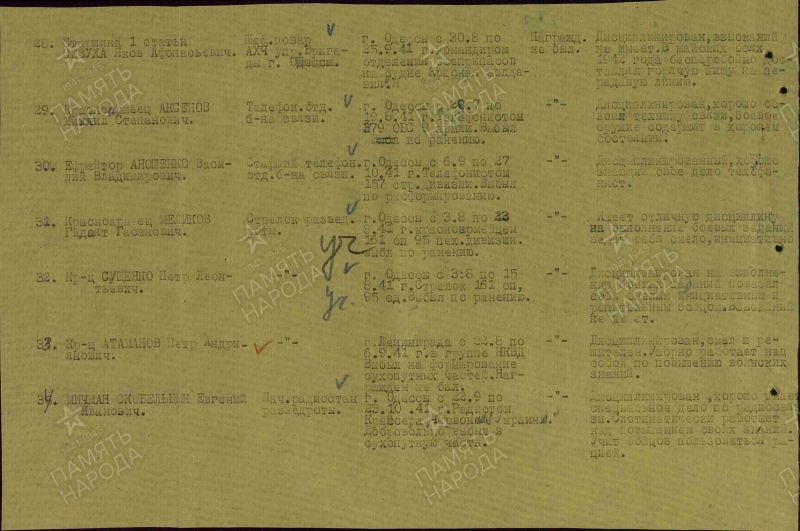 28. Старшина 1 статьи
Яков Афонасьевич.
Шеф.повар
АХЧ упр.Брига-
ды г. Одессы.
г. Одессы с 30.8 по
25.9.41 г.командиром
отделения боеприпасов
Награжд.
не был.
Дисциплинирован,взысканий
не имеет.В майских боях
1942 года бесперебойно дос-
тавлял горячую пищу на пе-
редовую линию.
29. Красноармеец АКСЕНОВ
Михаил Степанович.
Телефон.отд.
б-на связи.
г. Одессы с 26.7 по
19.8.41 г.Телефонистом
379 ОБС 9 армии.Выбыл
по ранению.
-"-
Дисциплинирован,хорошо ос-
воил технику связи,боевое
оружие содержит в хорошем
состоянии.
30. Ефрейтор АНОШЕНКО Васи-
лий Владимирович.
Старший телефон.
отд.б-на связи.
г.Одессы с 6.9 по 27
10.41 г.Телефонистом
157 стр.дивизии.Выбыл
по расформированию.
-"-
Дисциплинированный,хорошо
знающий свое дело телефо-
нист.
31. Красноармеец МЕЛИКОВ
Гидаят Гасанович.
Стрелок развед.
роты.
г.Одессы с 3.8 по 23
8.41 г.красноармейцем
161 сп 95 пех.дивизии.
Выбл по ранению.
-"-
Имеет отличную дисциплину
на выполнении боевых заданий
ведет себя смело,инициативно
32. Кр-ц СУЩЕНКО Петр Леон-
тьевич.
-"-
г. Одессы с 3.8 по 15
8.41 г.Стрелок 161 сп,
95 сд.Выбыл по ранению.
-"-
Дисциплинирован на выполне-
нии боевых заданий показал
себя смелым инициативным и
решительным бойцом.Взысканий
не имеет.
33. Кр-ц АТАМАНОВ Петр Андри-
янович.
-"-
г.Ленинграда с 22.8 по
6.9.41 г.в группе НКВД
Выбыл на формирование
сухопутных частей.Наг-
ражден не был.
-"-
Дисциплинирован,смел и ре-
шителен.Упорно работает над
собой по повышению воинских
знаний.
34. МИЧМАН СКОБЕЛЬЦИН Евгений
Иванович.
Нач.радиостан
разведроты.
г. Одессы с 22.9 по
23.10.41 г.Радистом
Крейсера Червонной Украины"
Добровольно выбыл в
сухопутную часть.
-"-
Дисциплинирован ,хорошо знает
специальное дело по радиосвя-
зи.Систематически работает
над повышением своих знаний.
Учит бойцов пользоваться ра-
цией.
уч
уч.
ПАМЯТЬ
НАРОДА